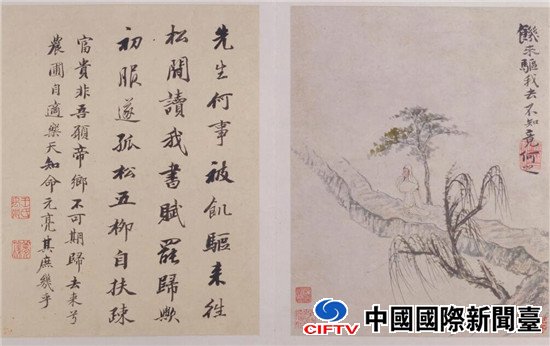 饑來驅我去不知竟何之
先生何事被飢驅來往
松間讀我書賦罷歸歟
初服遂孤松五柳自扶疎
富貴非吾願帝鄉不可期歸去來兮
農圃自適樂天知命元亮其庶幾乎
CIFTV
中國國際新聞臺